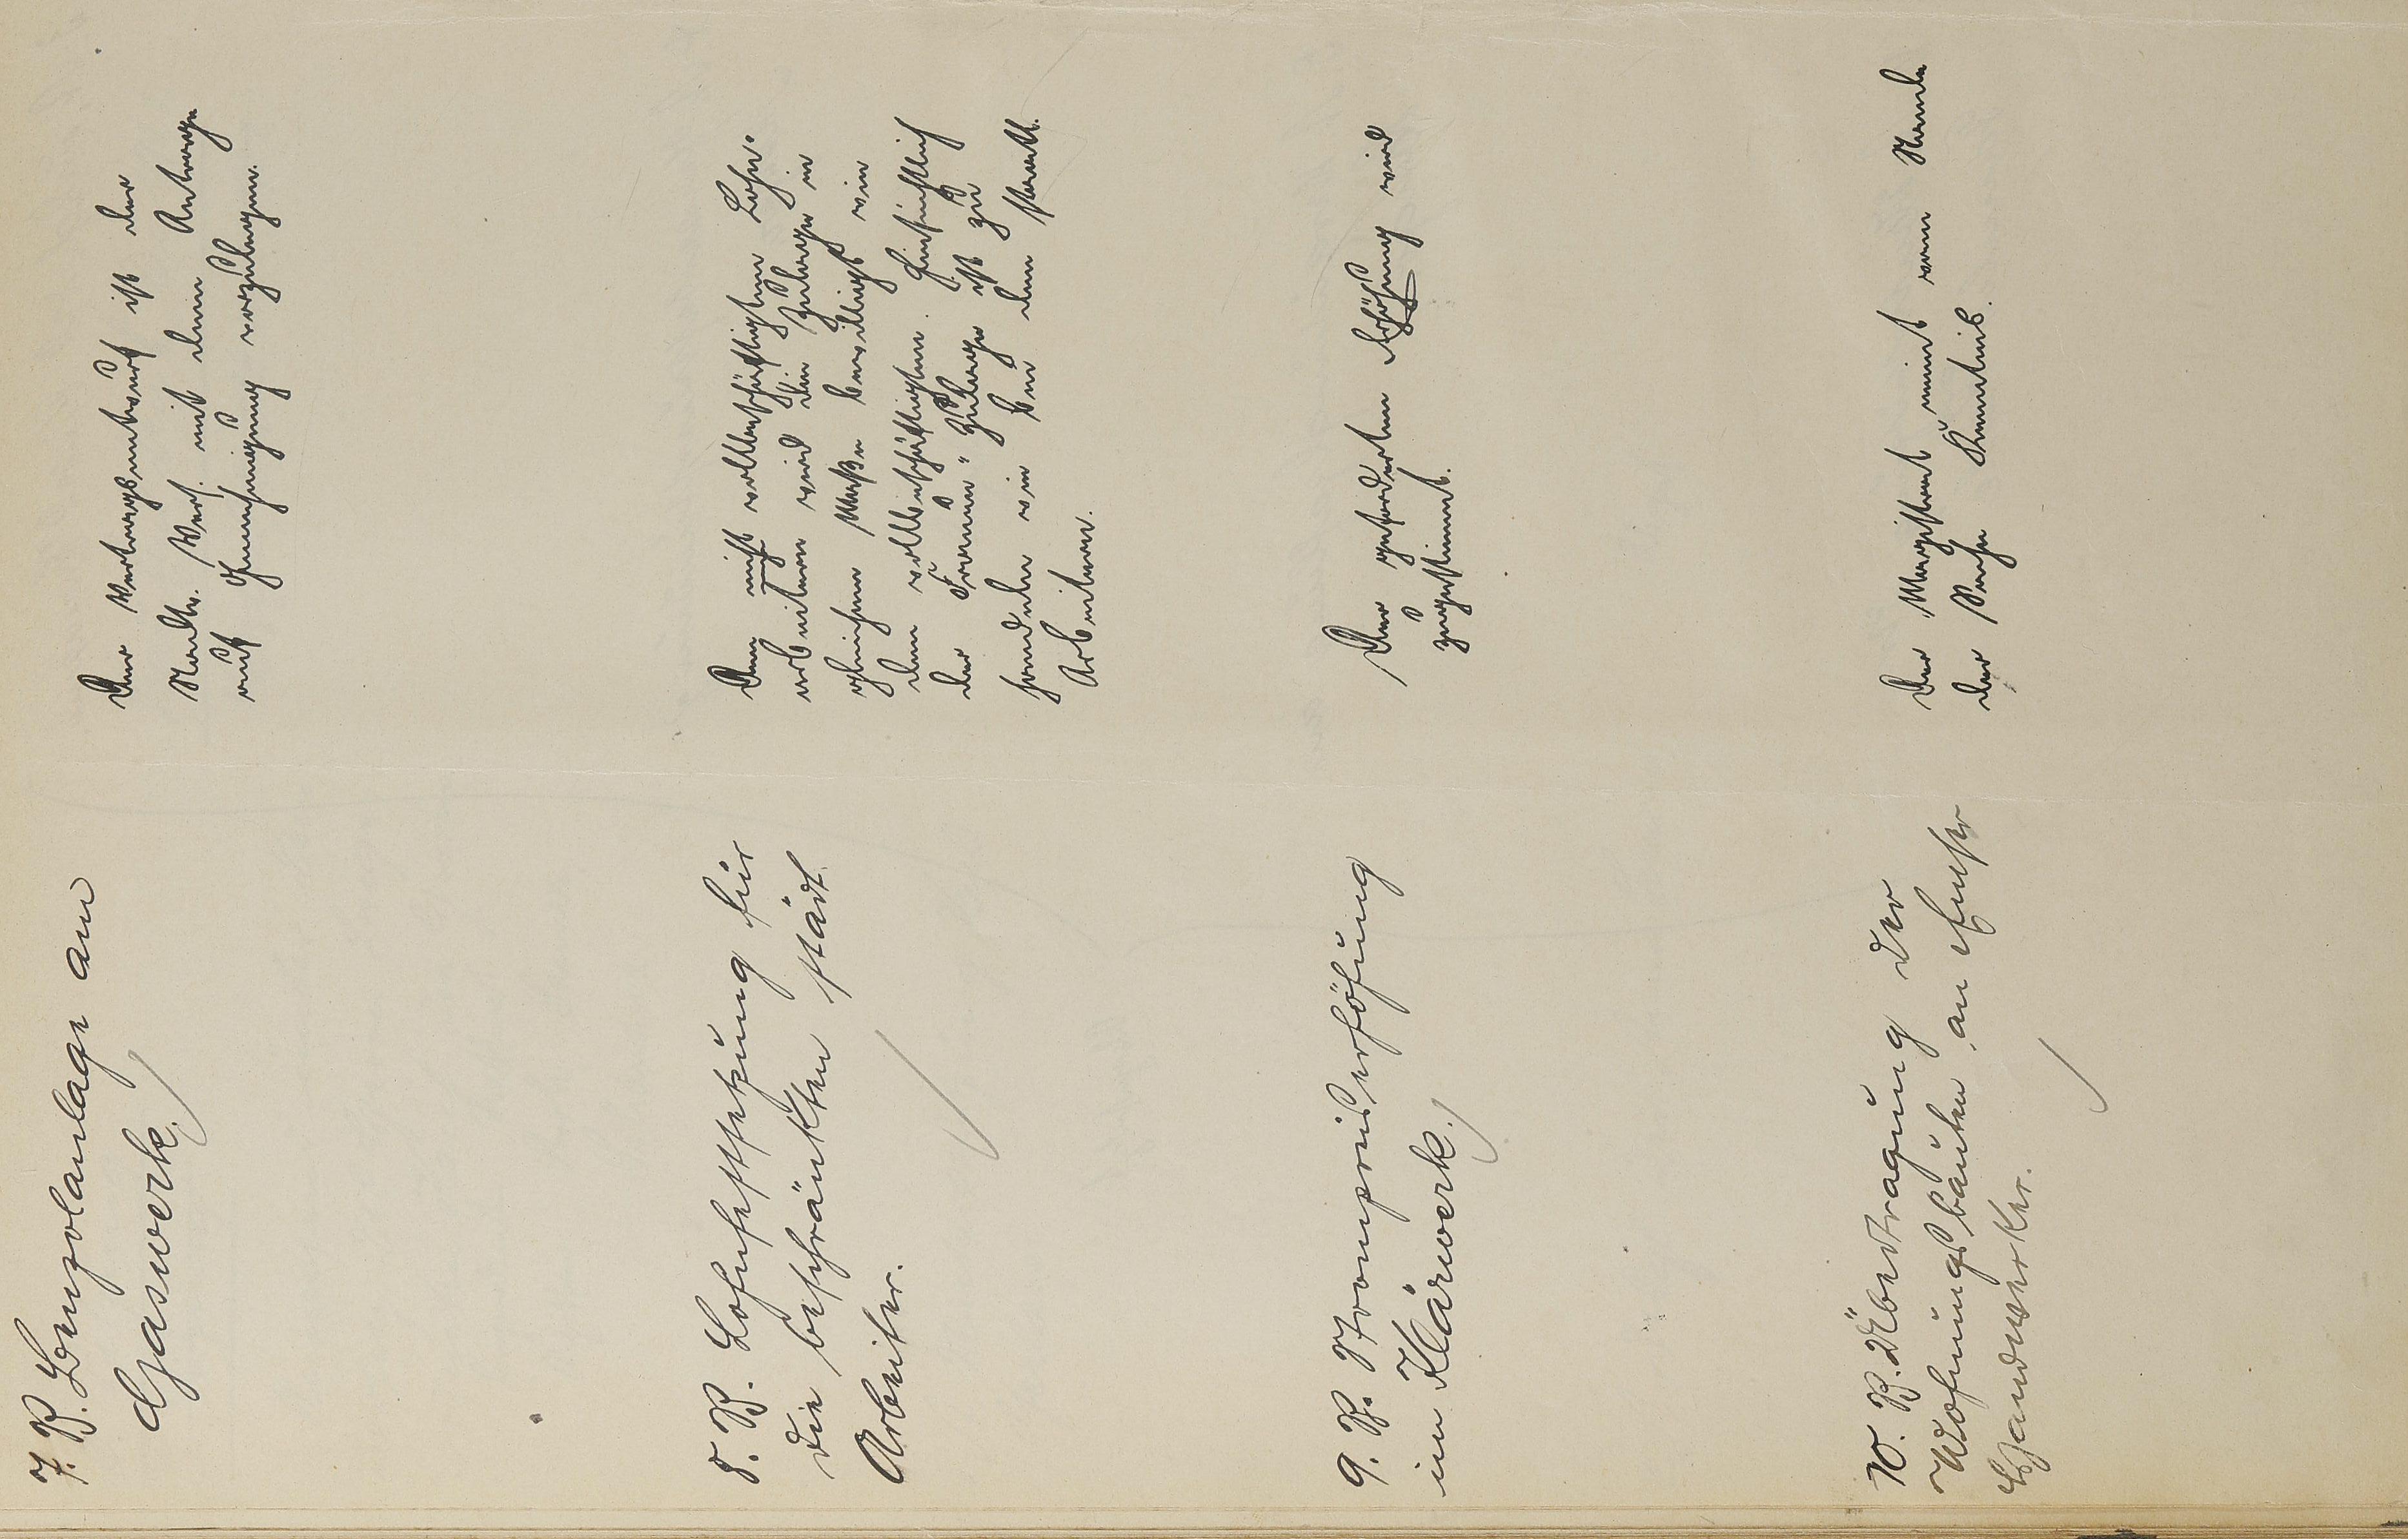 7. B. Benzolanlage am
Gaswerk.
Der Vertragsentwurf ist der
Stadtv. Vers. mit dem Antrage
auf Genehmigung vorzulegen.
8. B. Lohnfestsetzung für
die beschränkten städt.
Arbeiter.
Den nicht vollbeschäftigten Lohn-
arbeitern wird die Zulage in
gleichem Maße bewilligt wie
den vollbeschäftigten. Hinsichtlich
der Frauen-Zulage ist zu
handeln wie bei dem Staatl.
Arbeitern.
9. B. Strompreiserhöhung
im Klärwerk.
Der geforderten Erhöhung wird
zugestimmt.
10. B. Übertragung der
Wohnungsbauten an
Handwerker.
Der Magistrat nimmt vom Stande
der Sache Kenntnis.